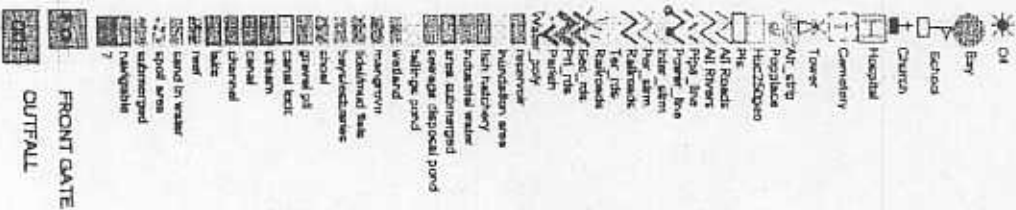 Oil
Bay
School
Church
Hospital
Cemetery
Tower
Air_strip
Popplace
Hsc250geo
Pls
All Roads
All Rivers
Pipe_line
Power_line
Inter_strm
Per_strm
Railroads
Ter_rds
Railroads
Sec_rds
Pri_rds
Parish
Wtr_poly
reservoir
inundation area
fish hatchery
industrial water
area submerged
sewage disposal pond
tailings pond
wetland
mangrove
tidal/mud flats
bays/estuaries
shoal
gravel pit
canal lock
stream
canal
channel
lake
reef
sand in water
spoil area
submerged
navigable
?
FRONT GATE
OUTFALL